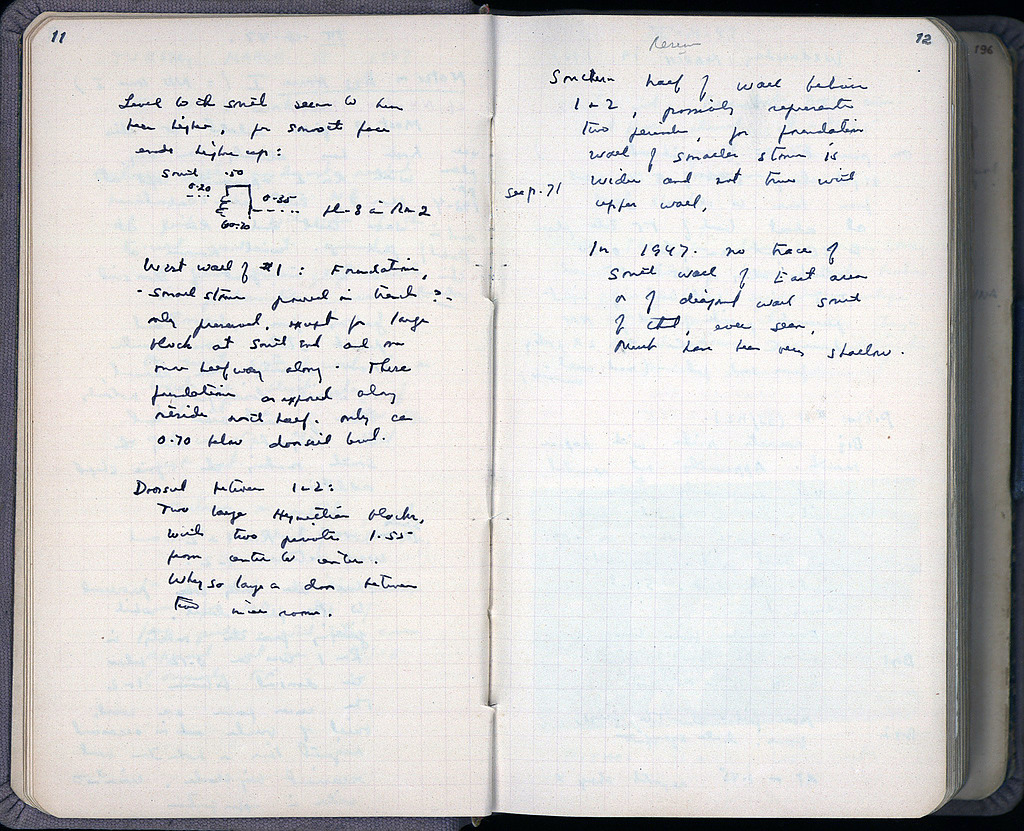 11
Level to the south seems to have
been higher, for smooth face
ends higher up:
South .50
0.20
0.35
60-70
in Rm 2
West wall of #1: Foundation,
- small stones in trench ? -
only preserved, except for large
block at South End and one
more halfway along. These
foundations exposed along
north half. only ca
0.70 below doorsill level.
Doorsill between 1+2:
Two large Hymettian blocks,
with two pivots 1.55
from center to center.
Why so large a door between
two rooms.
12
Southern half of wall between
1+2, possibly represents
two periods, for foundation
wall of smaller stones is
see p. 71
wider and not true with
upper wall.
In 1947. no trace of
South wall of East area
or of diagonal wall South
of that, ever seen,
Must have been very shallow.
196